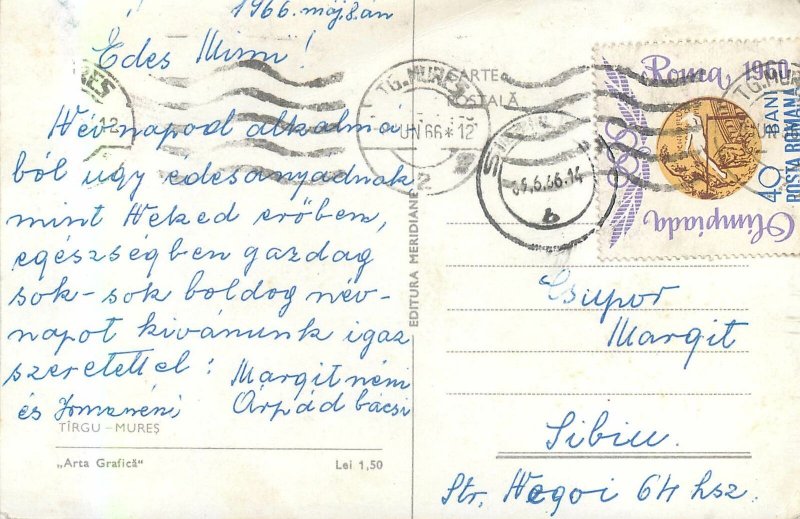 1966. máj. 8.-án
Édes Mimi!
Névnapod alkalmá
ból úgy édesanyádnak
mint Neked erőben,
egészségben gazdag
sok-sok boldog név-
napot kivánunk igaz
szeretettel: Margit néni
és néni Árpád bácsi
TÎRGU-MUREȘ
„Arta Grafică" Lei 1,50
EDITURA MERIDIANE
CARTE
POSTALĂ
TG. MUREȘ
UN 66 * 12
2
6.66.14
b
Roma, 1960
Olimpiada
40 BANI
POSTA ROMANA
Csupor
Margit
Sibiu.
Str. Negoi 64 hsz.